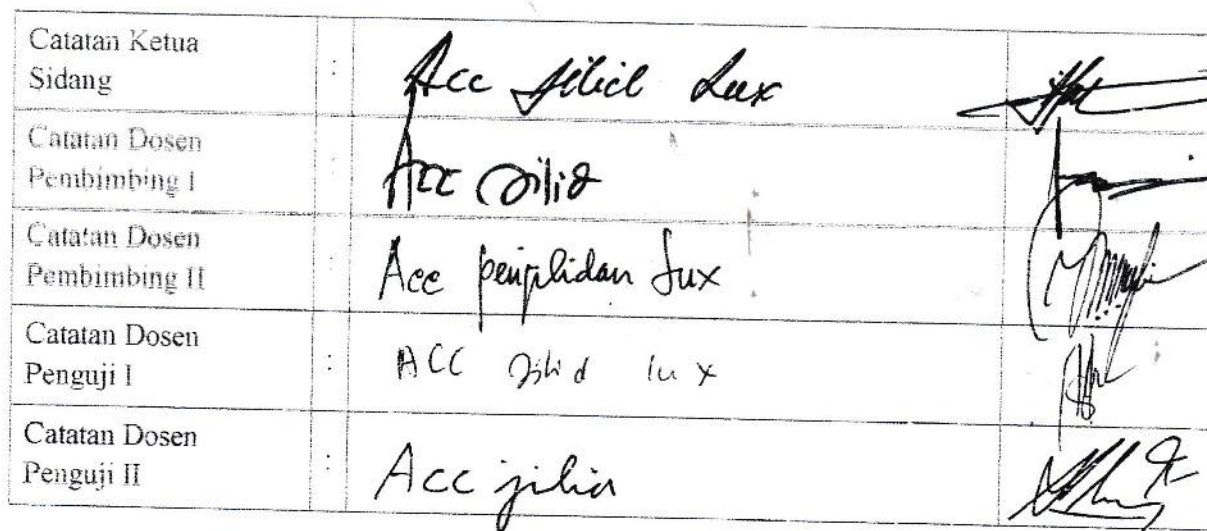 Catatan Ketua
Sidang
: Acc jilid Lux
Catatan Dosen
Pembimbing I
: Acc jilid
Catatan Dosen
Pembimbing II
: Acc penjilidan Lux
Catatan Dosen
Penguji I
: ACC jilid lux
Catatan Dosen
Penguji II
: Acc jilid